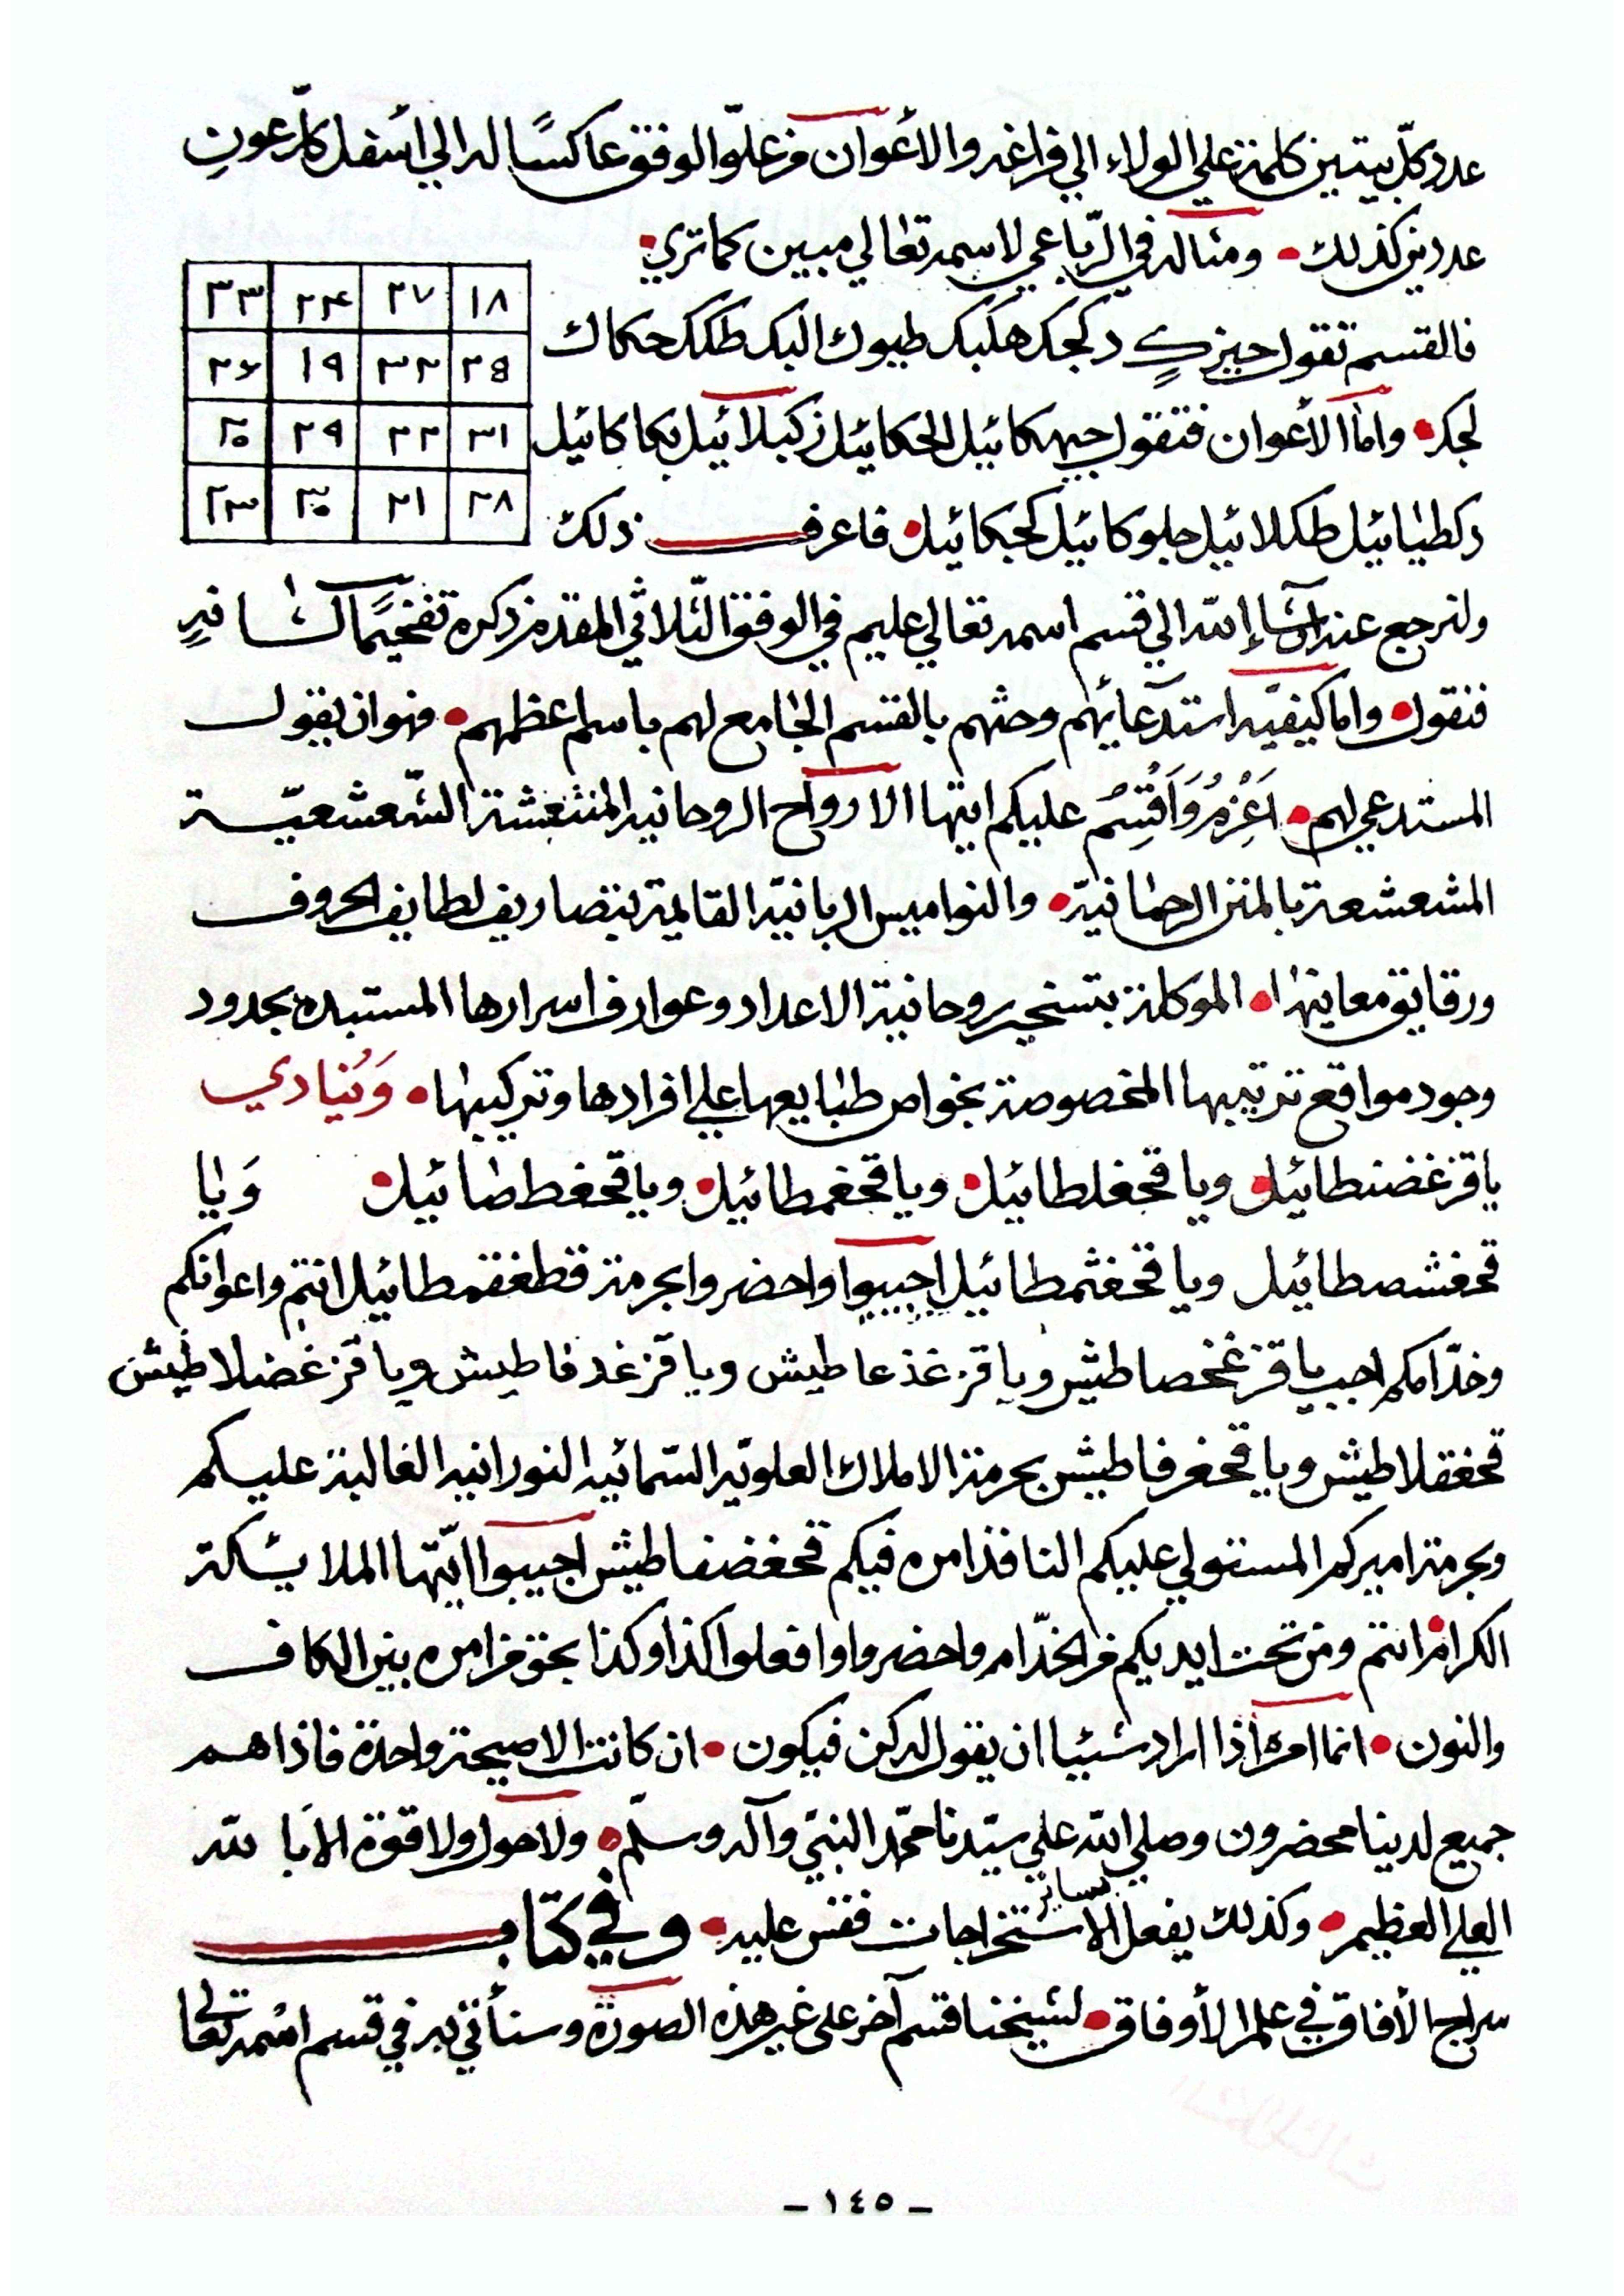 عدد كلّ بيتين كلمة علي الولاء الي فراغه والأعوان من علوّ الوفق عاكسًا له الي أسفل كلّ عونٍ
عددين كذلك • ومثاله في الرّباعي لاسمه تعالي مبين كما تري •
٣٣ ٢۴ ٢٧ ١٨
فالقسم تقول دكجك هلبك طيوك البك طلكك حكماك
٢۶ ١٩ ٣٢ ٢٥
لجك • واما الأعوان فتقول جيهكائيل الحكائيل زكبلائيل بكاكائيل
٢٠ ٢٩ ٢٢ ٣١
دكطيائيل طكلائيل جلوكائيل كحبكائيل • فاعرف ذلك
٢٣ ٣٠ ٢١ ٢٨
ولنرجع عند إنشاء الله الي قسم اسمه تعالي عليم في الوفق الثلاثي المقدم ذكره تفخيمًا لشانه
فنقول • واما كيفيّه استدعائهم وحثهم بالقسم الجامع لهم باسم اعظمهم • فهو ان يقول
المستدعي لهم • اَعْزِمُ وَاَقْسِمُ عليكم ايتها الارواح الروحانيه المنتعشة الشعشعيّة
المشعشعة بالمنن الرحمانيّة • والنواميس الربانيّه القائمة بتصاريف لطايف الحروف
ورقايق معاينها • الموكلة بتسخير روحانية الاعداد وعوارف اسرارها المستبده بحدود
وجود مواقع ترتيبها المخصوصة بخواص طبايعها علي افرادها وتركيبها • وَيُنَادي
ياقزغضنطائيل • وياقحغلطائيل • وياقحغمطائيل • وياقحغططائيل • وَيا
قحغشصطائيل وياقحغثمطائيل اجيبوا واحضروا بحرمة قطغقمطائيل انتم واعوانكم
وخدّامكم اجب ياقزغخصاطيش وياقزغذعاطيش وياقزغدفاطيش وياقزغضلاطيش
قحغقلاطيش وياقحغرفاطيش بحرمة الاملاك العلويّه السّمائيه النورانيه الغالبة عليكم
وبحرمة اميركم المستولي عليكم النافذ امره فيكم قحغضفاطيش اجيبوا ايّتها الملايكة
الكرام انتم ومن تحت ايديكم من الخدّام واحضروا وافعلوا كذا وكذا بحق من امره بين الكاف
والنون • انما امره اذا اراد شيئيا ان يقول له كن فيكون • ان كانت الا صيحة واحدة فاذا هم
جميع لدينا محضرون وصلي الله علي سيّدنا محمّد النبيّ وآله وسلّم • ولا حول ولا قوّة الا بالله
العلي العظيم • وكذلك يفعل بسائر الاستخراجات فقس عليه • وفي كتاب
سراج الأفاق في علم الأوفاق • لشيخنا قسم آخر على غير هذه الصورة وسنأتي به في قسم اسمه تعالى
- ١٤٥ -